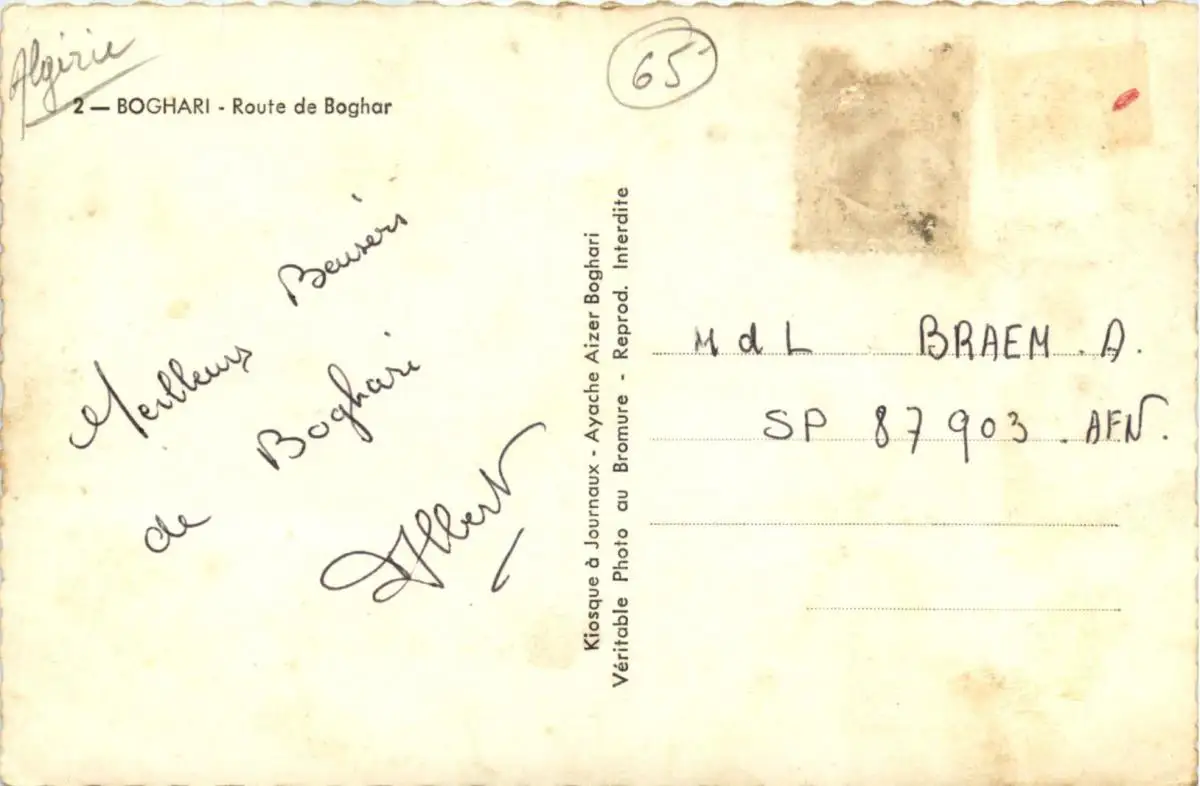 Algérie
65
2 — BOGHARI - Route de Boghar
Meilleurs Baisers
de Boghari
Albert
Kiosque à Journaux - Ayache Aizer Boghari
Véritable Photo au Bromure - Reprod. Interdite
M d L BRAEM . A.
SP 87 903 . AFN.